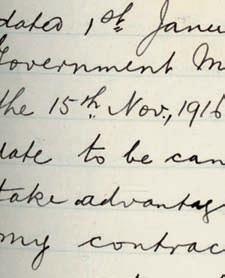 dated 1st Janu
Government M
the 15th Nov., 1916
date to be can
take advantag
my contrac